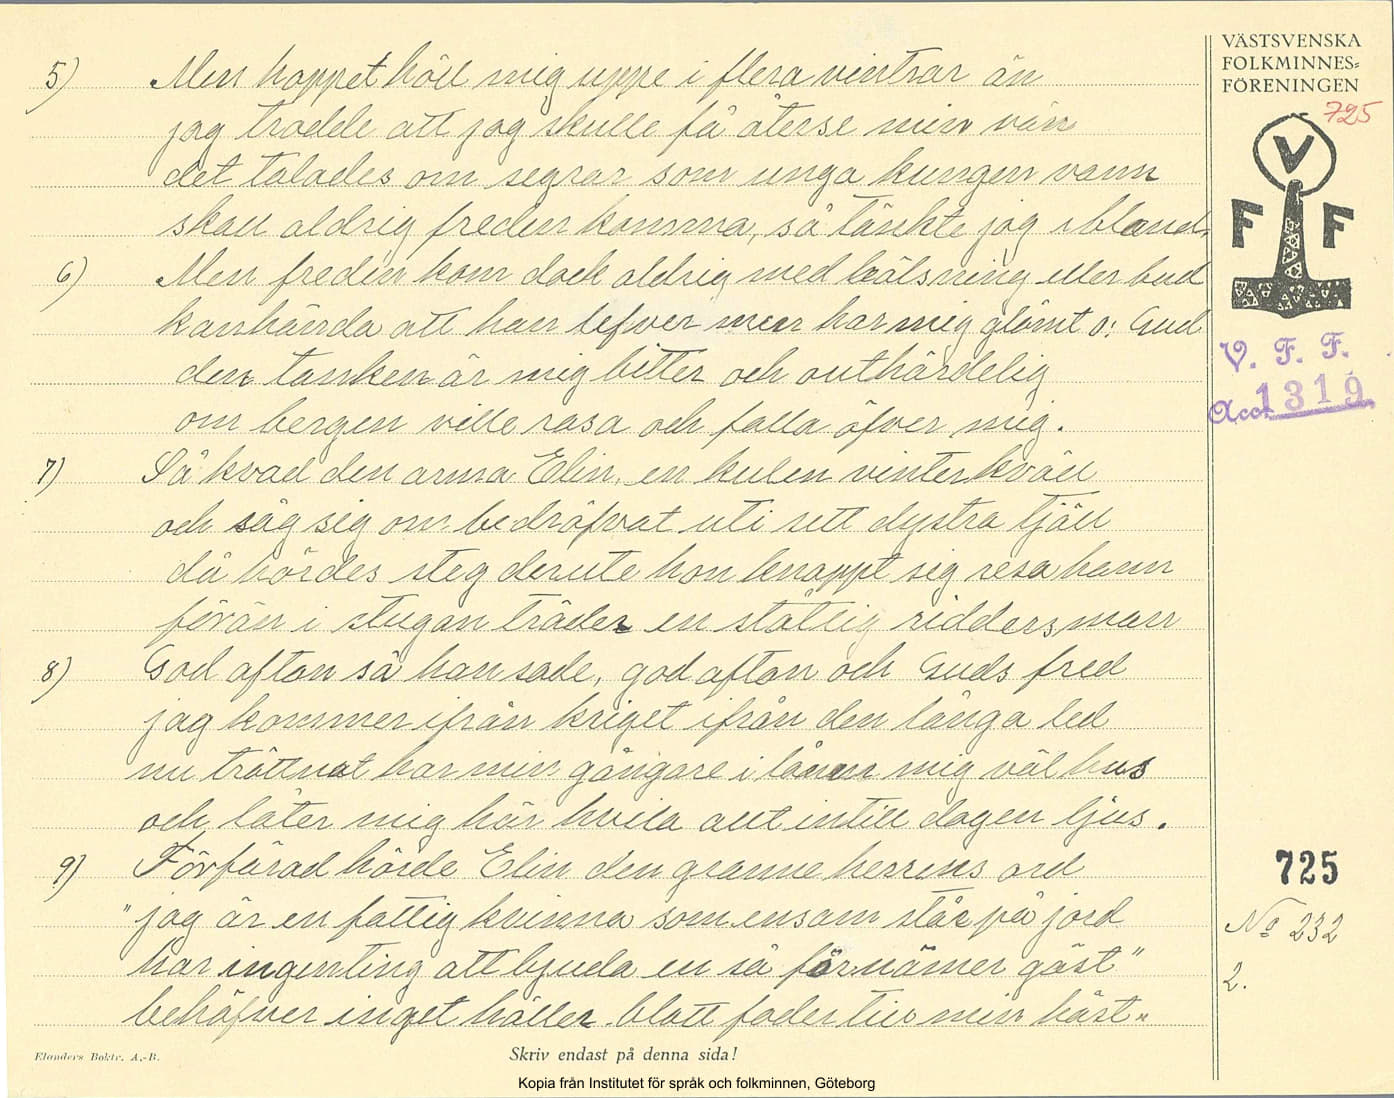 VÄSTSVENSKA
FOLKMINNES=
FÖRENINGEN
725
V
F F
V. F. F.
Acc. 1319
5) Men hoppet höll mig uppe i flera vintrar än
jag trodde att jag skulle få återse min vän
det talades om segrar som unga kungen vann
skall aldrig freden komma, så tänkte jag ibland,
6) Men freden kom dock aldrig med hälsning eller bud
kanhända att han lefver men har mig glömt o! Gud
den tanken är mig bitter och outhärdelig
om bergen ville rasa och falla öfver mig.
7) Så kvad den arma Elin, en kulen vinterkväll
och såg sig om bedröfvat uti sitt dystra tjäll
då hördes steg derute hon knappt sig resa hann
förän i stugan träder en ståtlig riddersman
8) God afton så han sade, god afton och Guds fred
jag kommer ifrån kriget ifrån den långa led
nu tröttnat har min gångare i lånen mig väl hus
och låter mig här hvila allt intill dagen ljus.
9) Förfärad hörde Elin den granne herrens ord
"jag är en fattig kvinna som ensam står på jord
har ingenting att bjuda en så förnämer gäst"
behöfver inget häller blott foder till min häst"
725
No 232
2.
Elanders Boktr. A.-B.
Skriv endast på denna sida!
Kopia från Institutet för språk och folkminnen, Göteborg